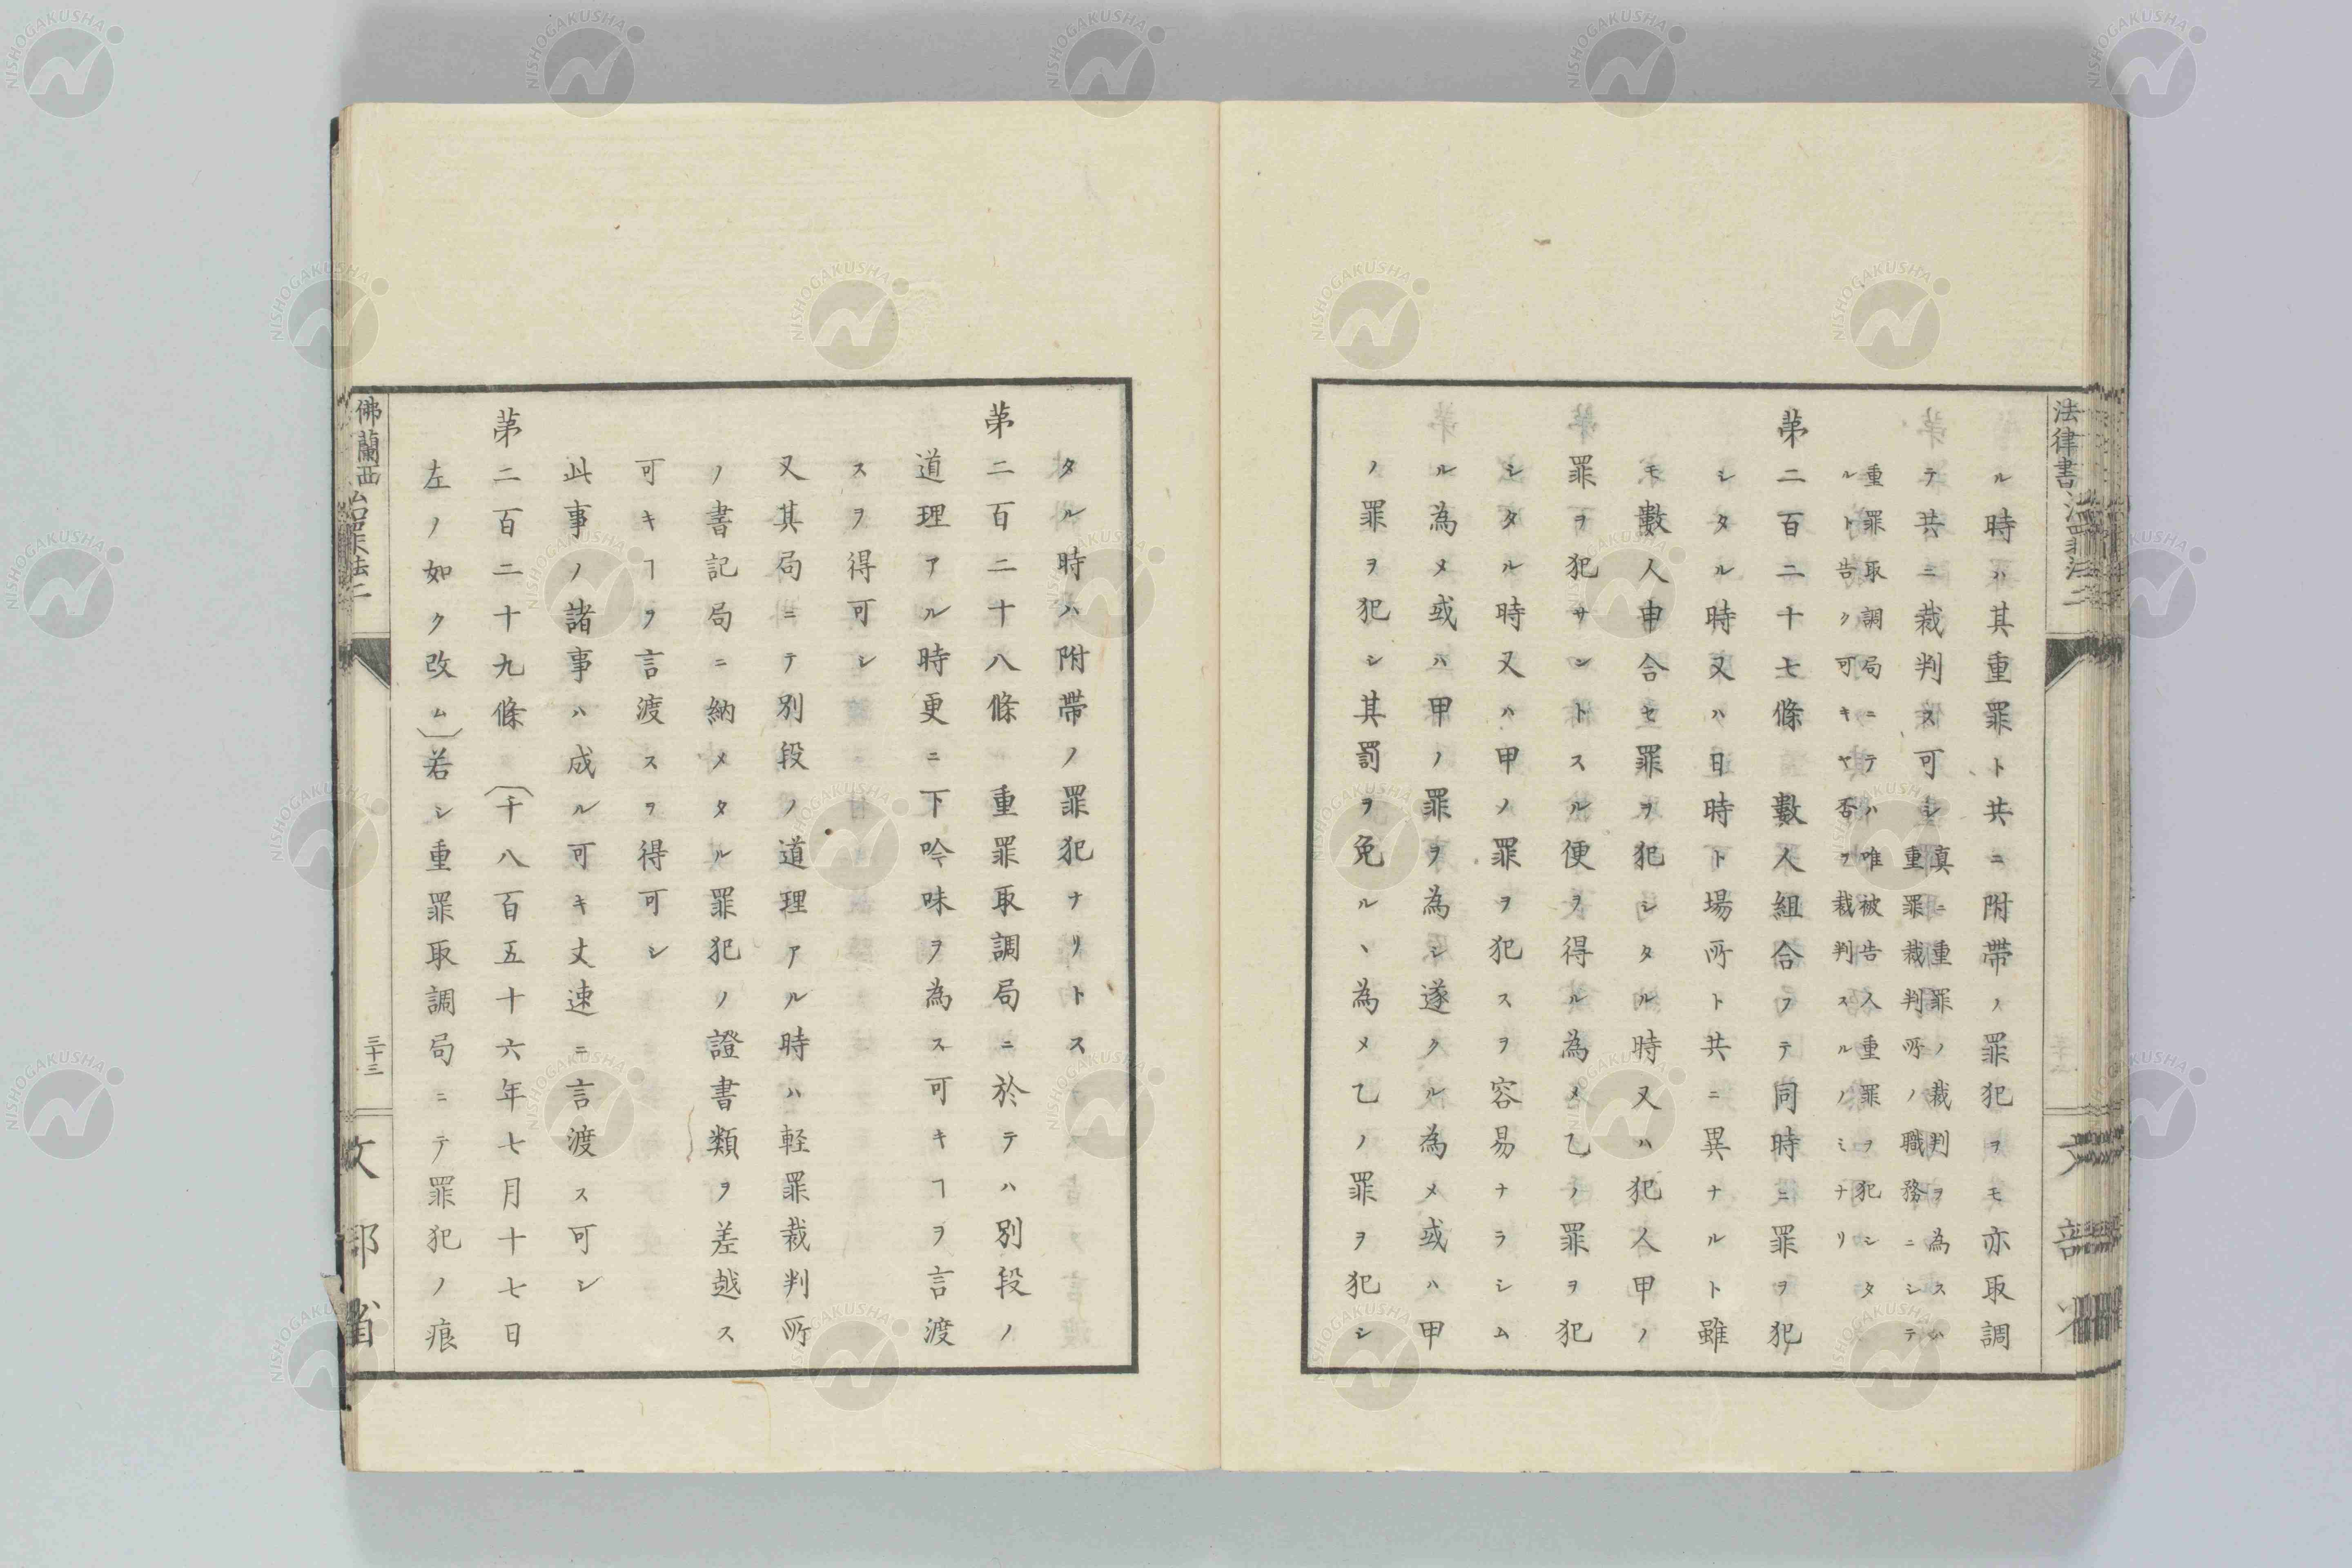 法律書
ル時ハ其重罪ト共ニ附帶ノ罪犯ヲモ亦取調
テ共ニ裁判ス可シ 真ニ重罪ノ裁判ヲ為スハ
重罪裁判所ノ職務ニシテ
重罪取調局ニテハ唯被告人重罪ヲ犯シタ
ルト告ク可キヤ否ヲ裁判スルノミナリ
苐二百二十七條 數人組合フテ同時ニ罪ヲ犯
シタル時又ハ日時ト場所ト共ニ異ナルト雖
モ數人申合セ罪ヲ犯シタル時又ハ犯人甲ノ
罪ヲ犯サントスル便ヲ得ル為メ乙ノ罪ヲ犯
シタル時又ハ甲ノ罪ヲ犯スヲ容易ナラシム
ル為メ或ハ甲ノ罪ヲ為シ遂クル為メ或ハ甲
ノ罪ヲ犯シ其罰ヲ免ルヽ為メ乙ノ罪ヲ犯シ
タル時ハ附帶ノ罪犯ナリトス
苐二百二十八條 重罪取調局ニ於テハ別段ノ
道理アル時更ニ下吟味ヲ為ス可キヿヲ言渡
スヲ得可シ
又其局ニテ別段ノ道理アル時ハ軽罪裁判所
ノ書記局ニ納メタル罪犯ノ證書類ヲ差越ス
可キヿヲ言渡スヲ得可シ
此事ノ諸事ハ成ル可キ丈速ニ言渡ス可シ
苐二百二十九條 (千八百五十六年七月十七日
左ノ如ク改ム)若シ重罪取調局ニテ罪犯ノ痕
佛蘭西治罪法二
三十三
文部省